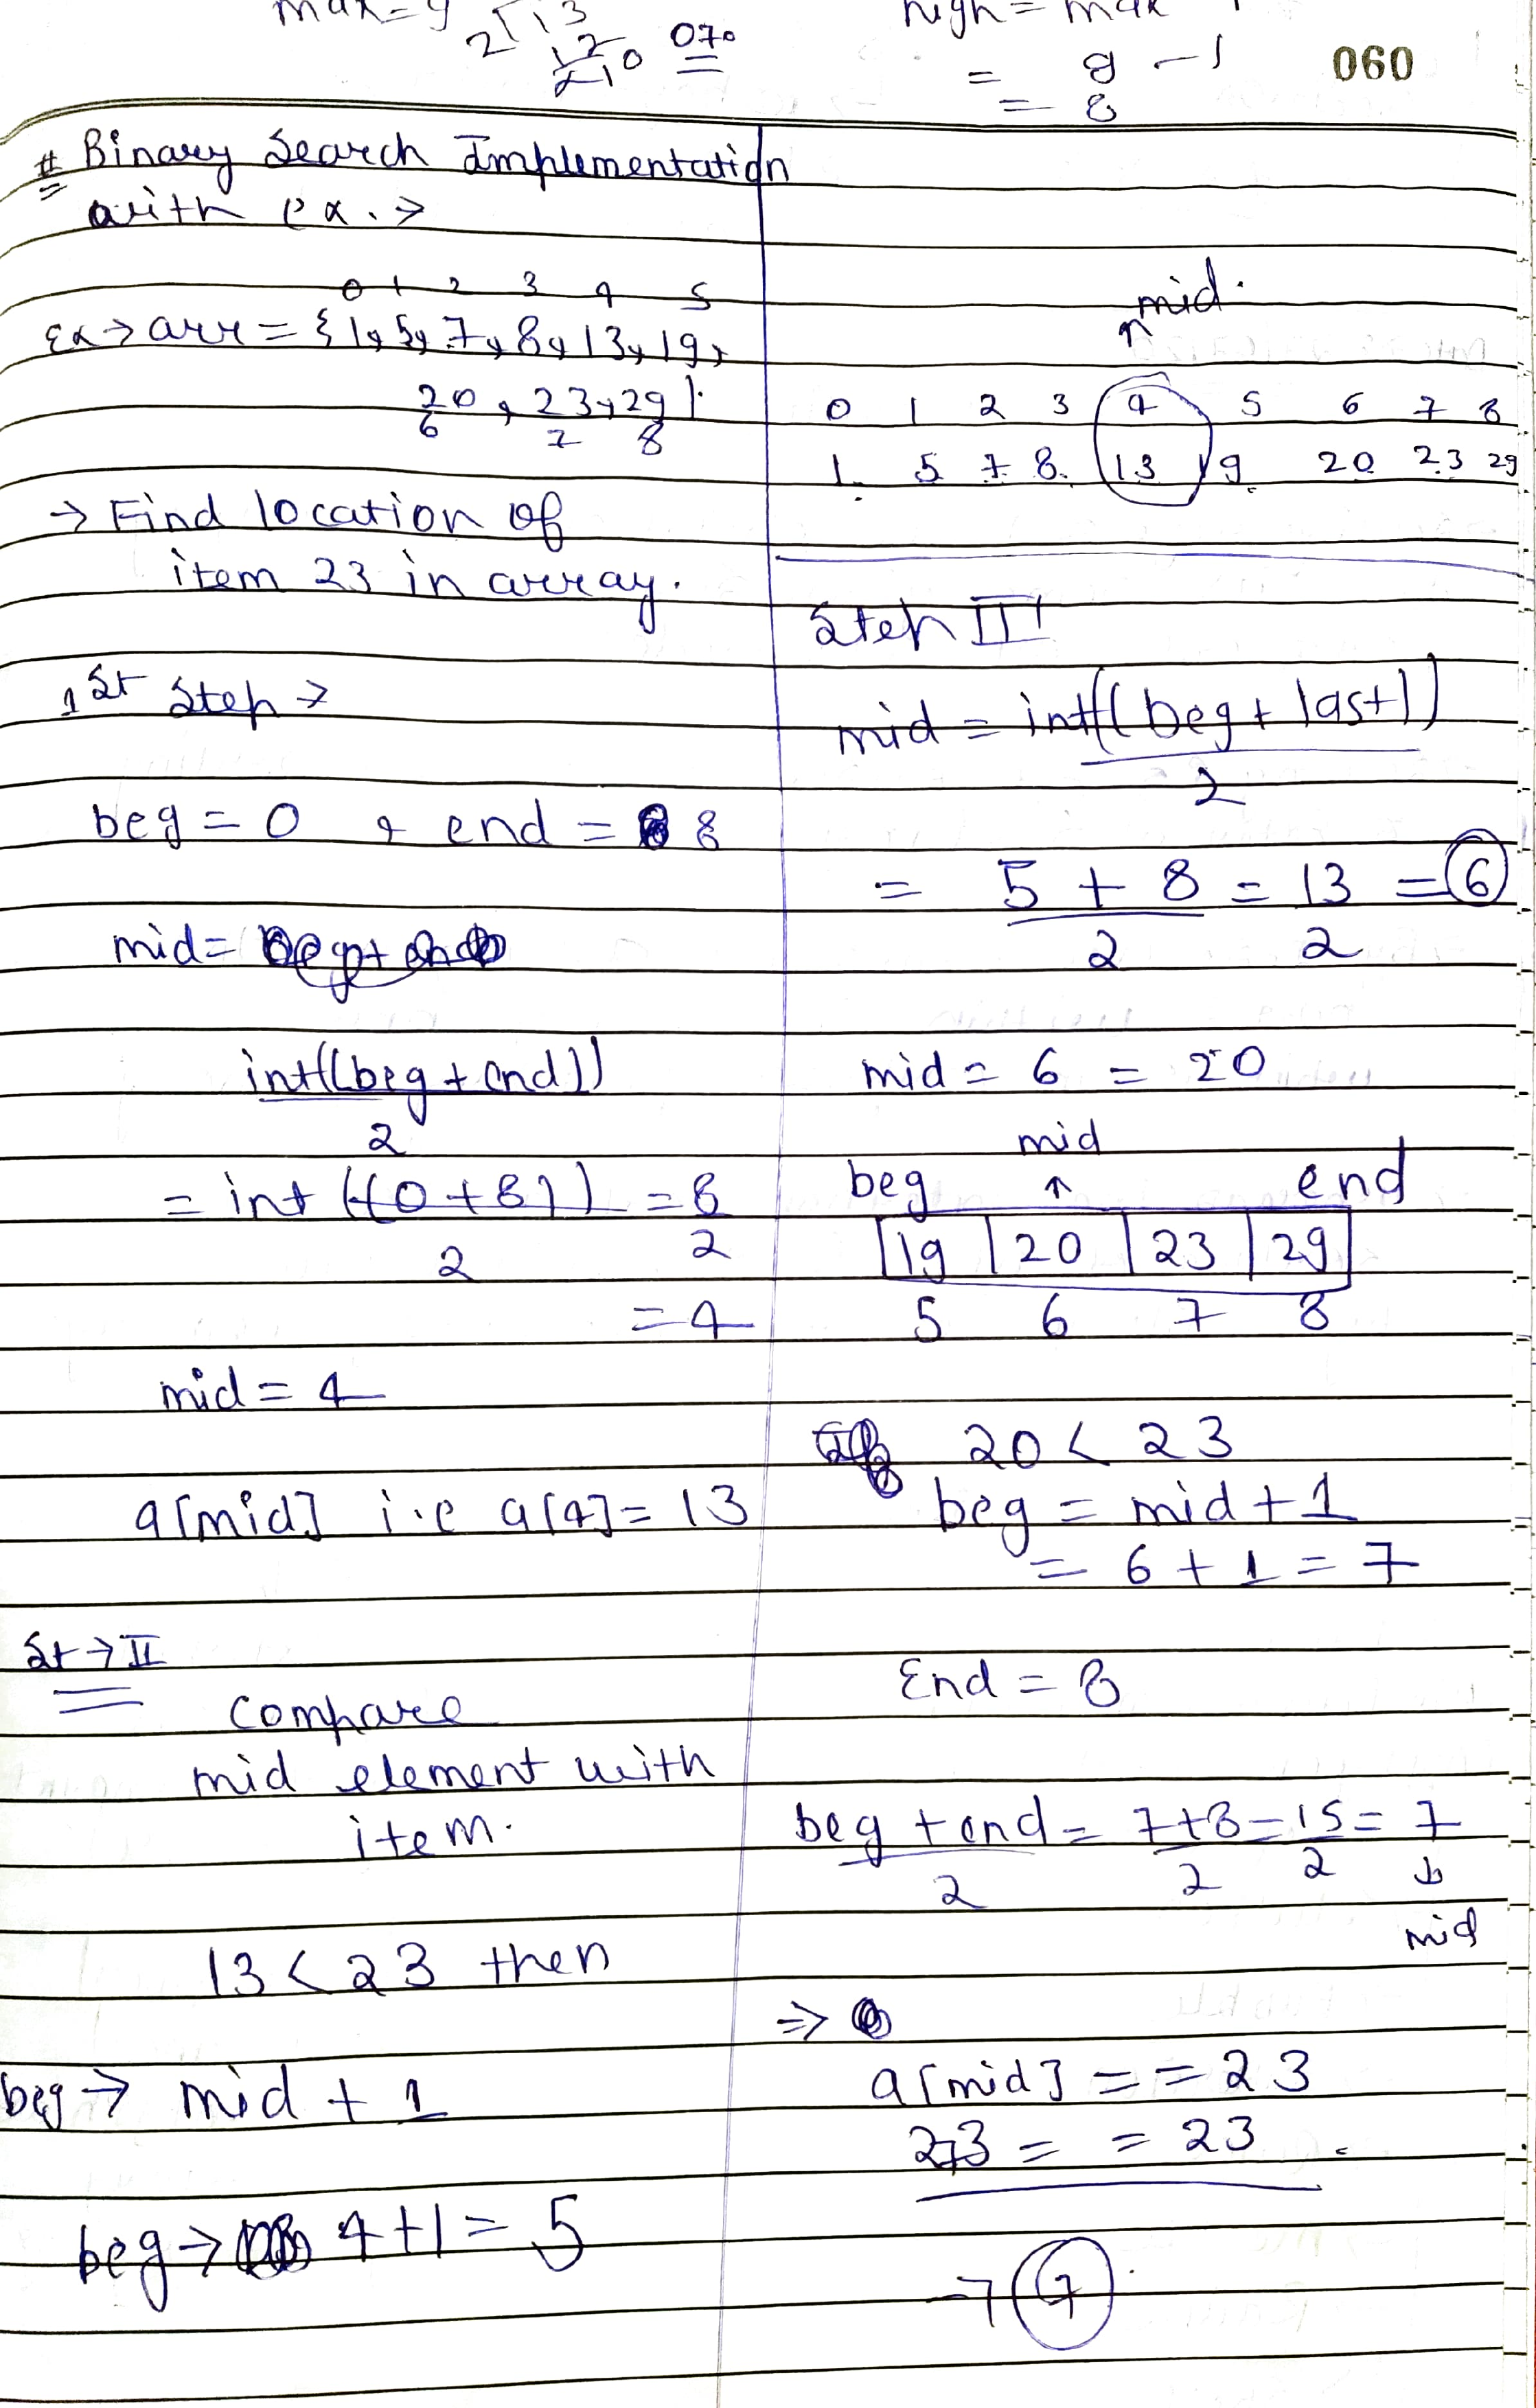 max = 9
2 13
12
10
070
high = max
= 9 - 1
= 8
060
# Binary Search Implementation
with ex. →
0 1 2 3 4 5
Ex → arr = {1, 5, 7, 8, 13, 19,
20, 23, 29}.
6 7 8
→ Find location of
item 23 in array.
1st Step →
beg = 0 , end = 8
mid = beg + end
int((beg + end))
2
= int ((0 + 8)) = 8
2 2
= 4
mid = 4
a[mid] i.e a[4] = 13
St → II
Compare
mid element with
item.
13 < 23 then
beg → mid + 1
beg → 4 + 1 = 5
mid.
0 1 2 3 4 5 6 7 8
1 5 7 8 13 19 20 23 29
Step III
mid = int((beg + last))
2
= 5 + 8 = 13 = 6
2 2
mid = 6 = 20
mid
beg ↑ end
19 20 23 29
5 6 7 8
20 < 23
beg = mid + 1
= 6 + 1 = 7
End = 8
beg + end = 7 + 8 = 15 = 7
2 2 2 ↓
mid
⇒
a[mid] = = 23
23 = = 23
→ 7